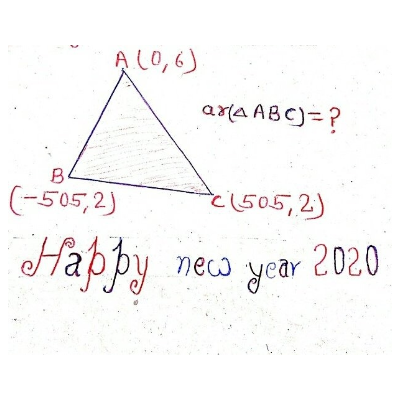 A(0,6)
ar(△ABC)=?
B
(-505,2)
C(505,2)
Happy new year 2020